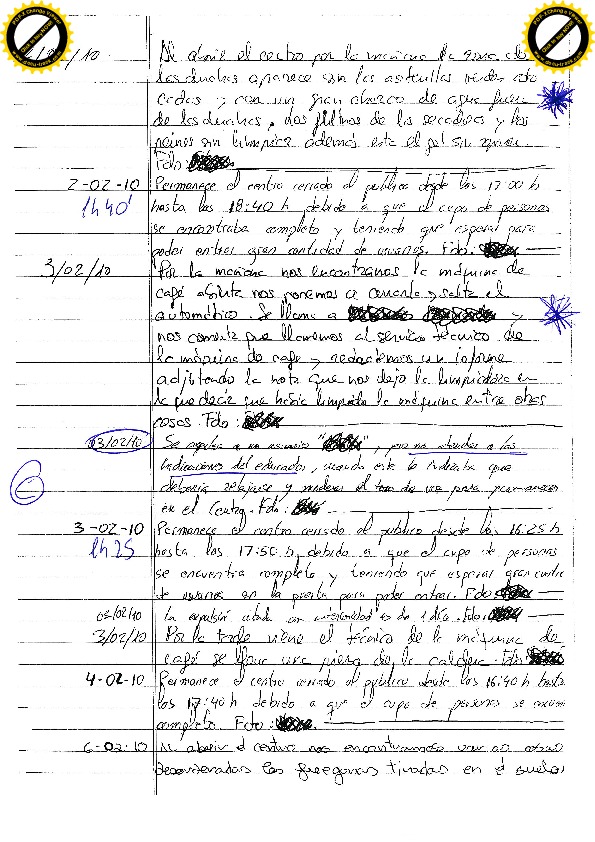 /10 Al abrir el centro por la mañana la zona de
las duchas aparece con las
y con un gran charco de agua fuera
de las duchas, dos de los secadores y los
peines sin limpiar además esta el gel sin
Fdo:
2-02-10 Permanece el centro cerrado al publico desde las 17:00 h
1h 40' hasta las 18:40 h debido a que el cupo de personas
se encontraba completo y teniendo que esperar para
poder entrar gran cantidad de usuarios. Fdo:
3/02/10 Por la mañana nos encontramos la máquina de
café abierta nos ponemos a y salta el
automático. Se llama a y
nos comenta que llamemos al servicio técnico de
la máquina de cafe y redactemos un informe
adjuntando la nota que nos dejo la limpiadora en
la que decía que había limpiado la máquina entre otras
cosas. Fdo:
03/02/10 Se expulsa a un usuario " ", por no atender a las
indicaciones del educador, cuando este le indicaba que
debería relajarse y moderar el tono de voz para permanecer
en el Centro. Fdo:
6
3-02-10 Permanece el centro cerrado al publico desde las 16:25 h
1h 25 hasta las 17:50 h, debido a que el cupo de personas
se encuentra completo y teniendo que esperar gran
de usuarios en la puerta para poder entrar. Fdo:
03/02/10 La expulsión citada con anterioridad es de 1 día. Fdo:
3/02/10 Por la tarde viene el técnico de la máquina de
café se lleva una pieza de la Fdo:
4-02-10 Permanece el centro cerrado al publico desde las 16:40 h hasta
las 17:40 h debido a que el cupo de personas se
completo. Fdo:
6-02-10 Al abrir el centro nos encontramos
las fregonas tiradas en el suelo,